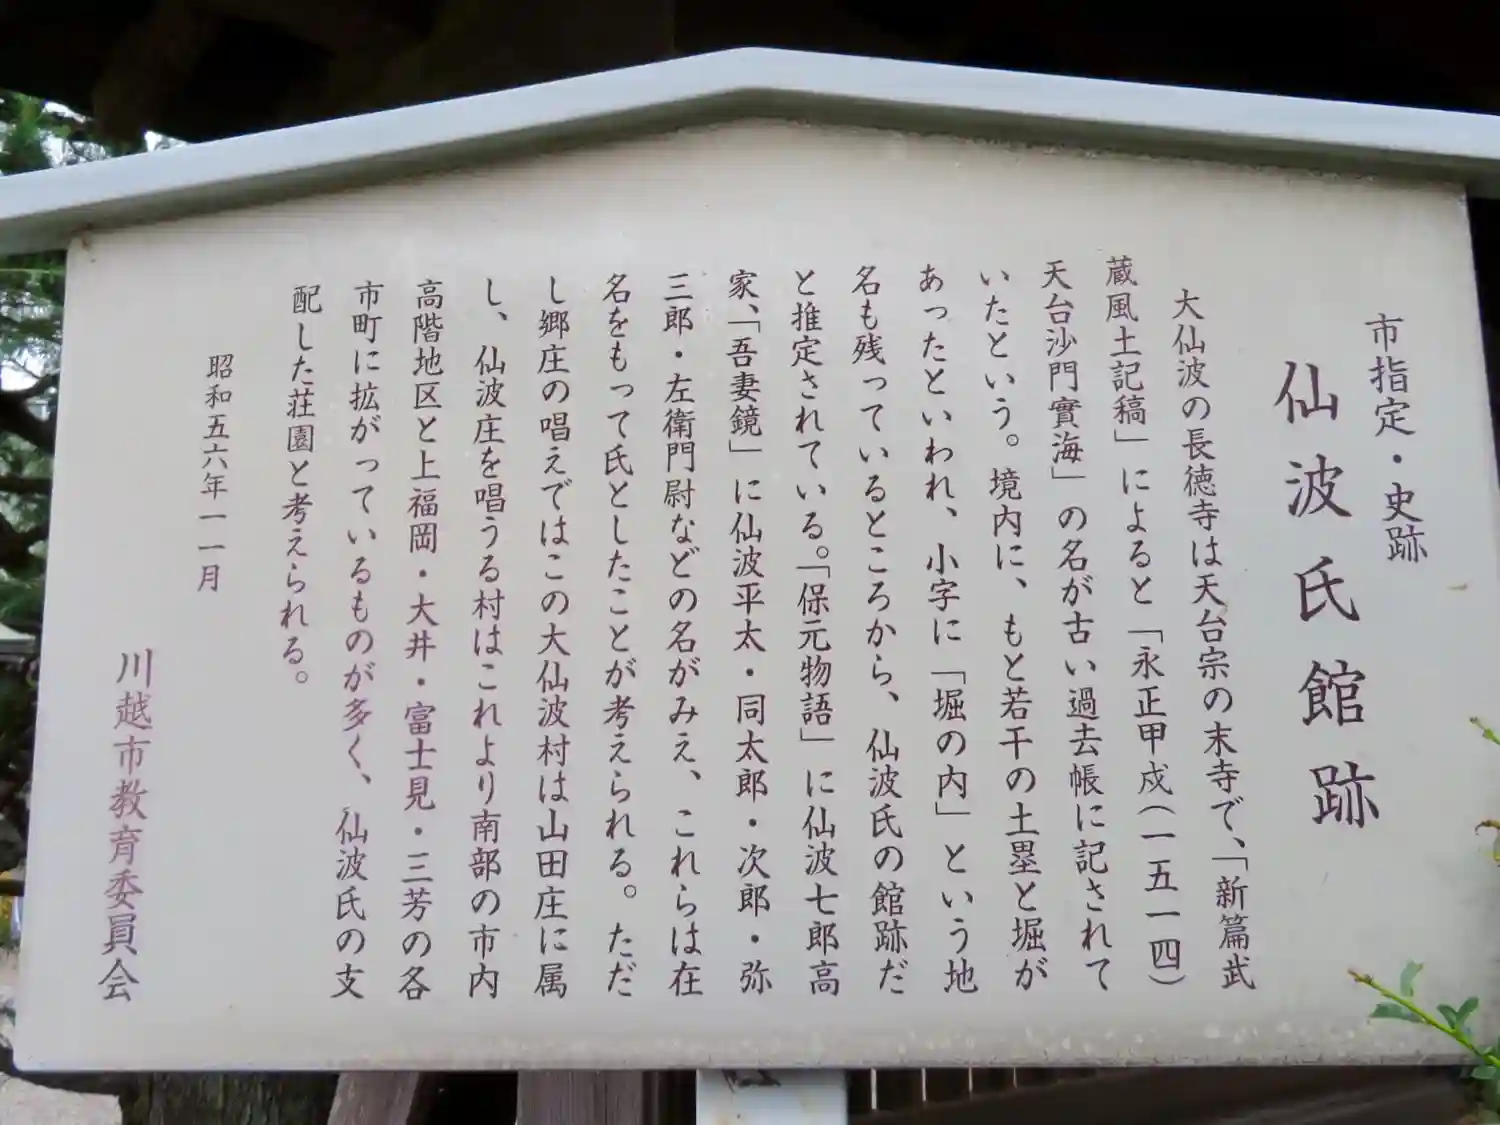 市指定・史跡
仙波氏館跡
大仙波の長徳寺は天台宗の末寺で、「新篇武
蔵風土記稿」によると「永正甲戍(一五一四)
天台沙門實海」の名が古い過去帳に記されて
いたという。境内に、もと若干の土塁と堀が
あったといわれ、小字に「堀の内」という地
名も残っているところから、仙波氏の館跡だ
と推定されている。「保元物語」に仙波七郎高
家、「吾妻鏡」に仙波平太・同太郎・次郎・弥
三郎・左衛門尉などの名がみえ、これらは在
名をもって氏としたことが考えられる。ただ
し郷庄の唱えではこの大仙波村は山田庄に属
し、仙波庄を唱うる村はこれより南部の市内
高階地区と上福岡・大井・富士見・三芳の各
市町に拡がっているものが多く、仙波氏の支
配した荘園と考えられる。
昭和五六年一一月
川越市教育委員会